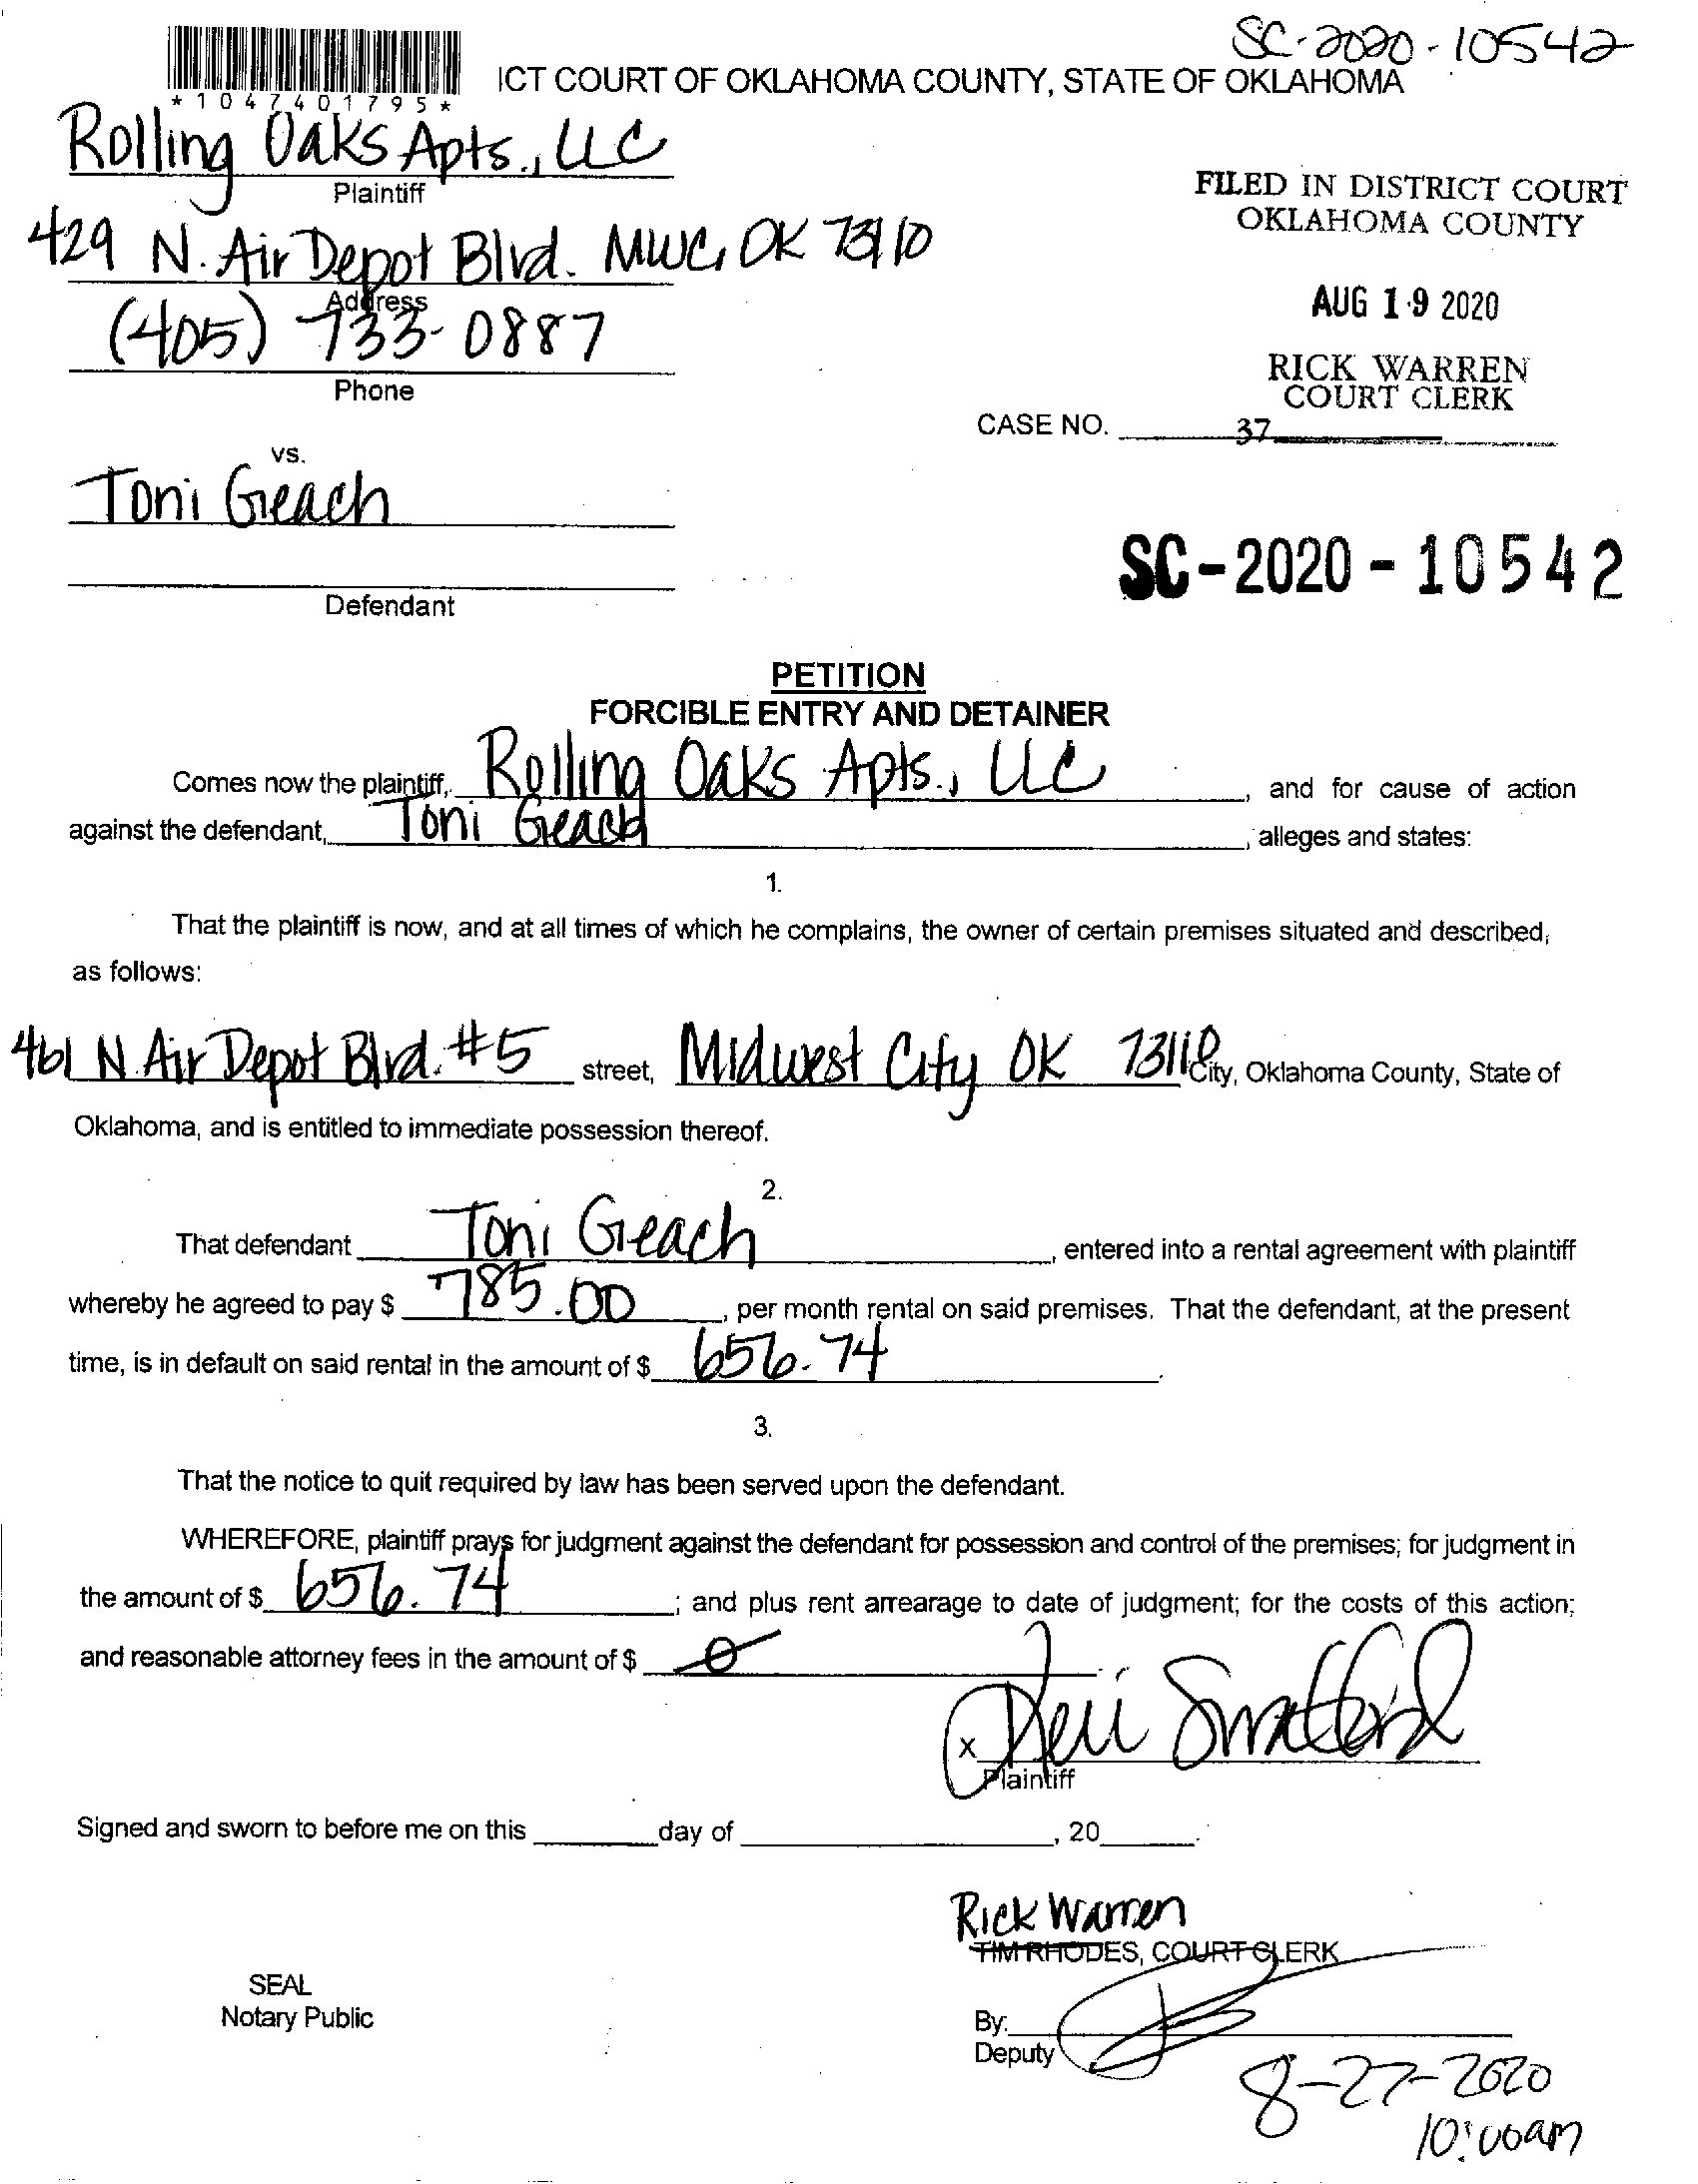 SC-2020-10542
*1047401795*
ICT COURT OF OKLAHOMA COUNTY, STATE OF OKLAHOMA
Rolling Oaks Apts., LLC
Plaintiff
FILED IN DISTRICT COURT
OKLAHOMA COUNTY
429 N. Air Depot Blvd. MWC, OK 73110
Address
AUG 19 2020
(405) 733-0887
Phone
RICK WARREN
COURT CLERK
CASE NO. 37
vs.
Toni Greach
SC-2020-10542
Defendant
PETITION
FORCIBLE ENTRY AND DETAINER
Comes now the plaintiff, Rolling Oaks Apts., LLC, and for cause of action
against the defendant, Toni Greach, alleges and states:
1.
That the plaintiff is now, and at all times of which he complains, the owner of certain premises situated and described,
as follows:
461 N. Air Depot Blvd. #5 street, Midwest City OK 73110 City, Oklahoma County, State of
Oklahoma, and is entitled to immediate possession thereof.
2.
That defendant Toni Greach, entered into a rental agreement with plaintiff
whereby he agreed to pay $ 785.00, per month rental on said premises. That the defendant, at the present
time, is in default on said rental in the amount of $ 656.74.
3.
That the notice to quit required by law has been served upon the defendant.
WHEREFORE, plaintiff prays for judgment against the defendant for possession and control of the premises; for judgment in
the amount of $ 656.74; and plus rent arrearage to date of judgment; for the costs of this action;
and reasonable attorney fees in the amount of $ 0
x
Plaintiff
Signed and sworn to before me on this ____ day of ____, 20____.
Rick Warren
TIM RHODES, COURT CLERK
SEAL
Notary Public
By:
Deputy
8-27-2020
10:00am